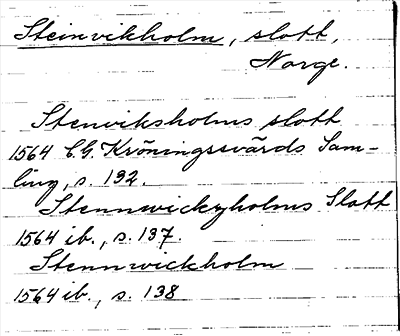 Steinvikholm, slott,
Norge.
Stenviksholms slott
1564 C.G. Kröningssvärds Sam-
ling, s. 132.
Stennwickzholms Slott
1564 ib., s. 137.
Stennwickholm
1564 ib., s. 138